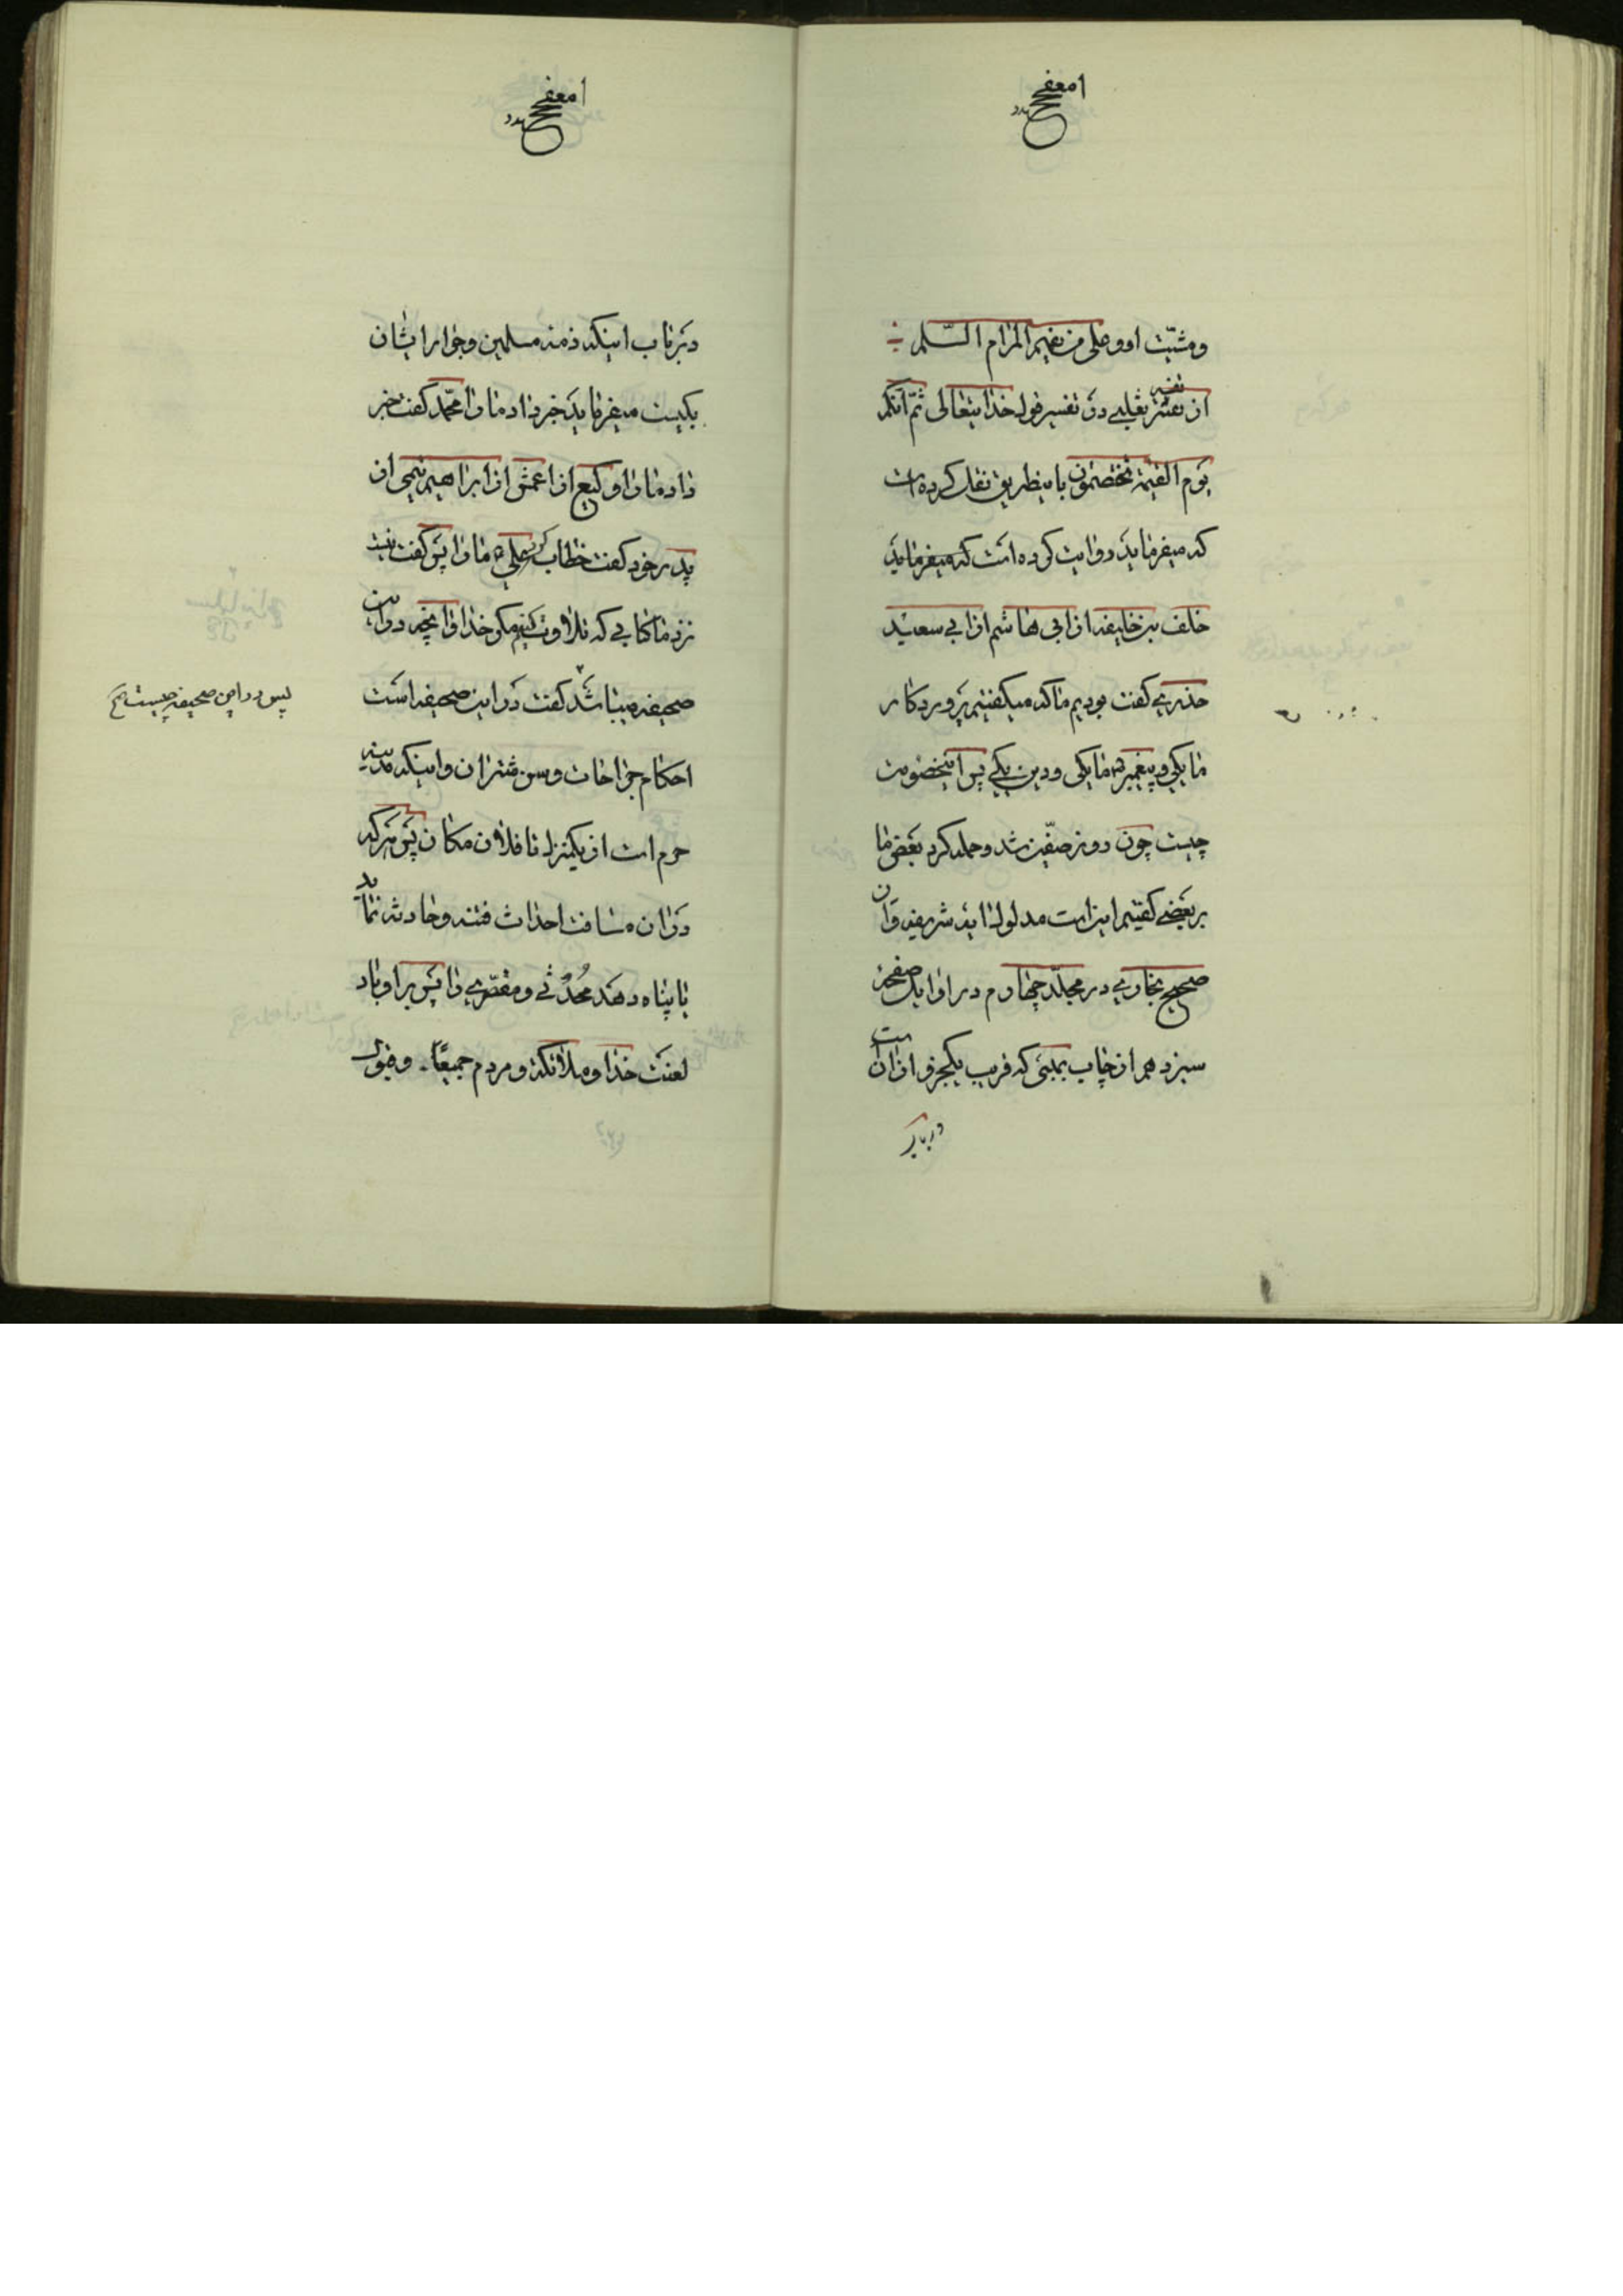 و مشیّت او و علی من یفهم المرام السّلم
از تفسیر ثعلبی در تفسیر قول خدایتعالی ثمّ انّکم
یوم القیمة تختصمون باینطریق نقل کرده است
که میفرماید روایت کرده است که میفرماید
خلف بن خلیفه از ابی هاشم از ابی سعید
خدری گفت بودیم ما که میگفتیم پروردگار
ما یکی و پیغمبر ما یکی و دین یکی پس اینخصومت
چیست چون روز صفّین شد و حمله کرد بعضی ما
بر بعضی گفتیم این است مدلول ایه شریفه و از ان
صحیح بخاری در مجلّد چهارم در اوایل صفحه
سیزدهم از چاپ بمبئی که قریب یکجزو از ان است
در باب
در باب اینکه ذمه مسلمین و جوار ایشان
یکیست میفرماید خبر داد ما را محمّد گفت خبر
داد ما را وکیع از اعمش از ابراهیم تیمی از
پدر خود گفت خطاب کرد علی ما را پس گفت نیست
نزد ما کتابی که تلاوت کنیم مگر خدا و انچه در این
صحیفه میباشد گفت در این صحیفه است
پس در این صحیفه چیست صح
احکام جراحات و سن شتران و اینکه مدینه
حرم است از یکمنزل تا فلان مکان پس هر که
در ان مسافت احداث فتنه و حادثه نماید
یا پناه دهد محدثی و مقصّری را پس بر او باد
لعنت خدا و ملائکه و مردم جمیعًا و قبول